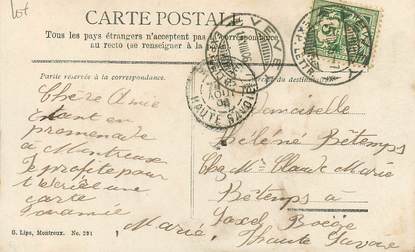 Lot
CARTE POSTALE
Tous les pays étrangers n'acceptent pas la correspondance
au recto (se renseigner à la
Partie réservée à la correspondance.
du destinataire
Chère Amie
Etant en
promenade
à Montreux
Je profite pour
t'écrire une
carte
Ton amie
Marie
Mademoiselle
Hélène Bétemps
Chez Mr Claude Marie
Bétemps à
Saxel Boëge
Haute Savoie
VEVEY
VEVEY
HAUTE SAVOIE
5
G. Lips, Montreux. No. 291